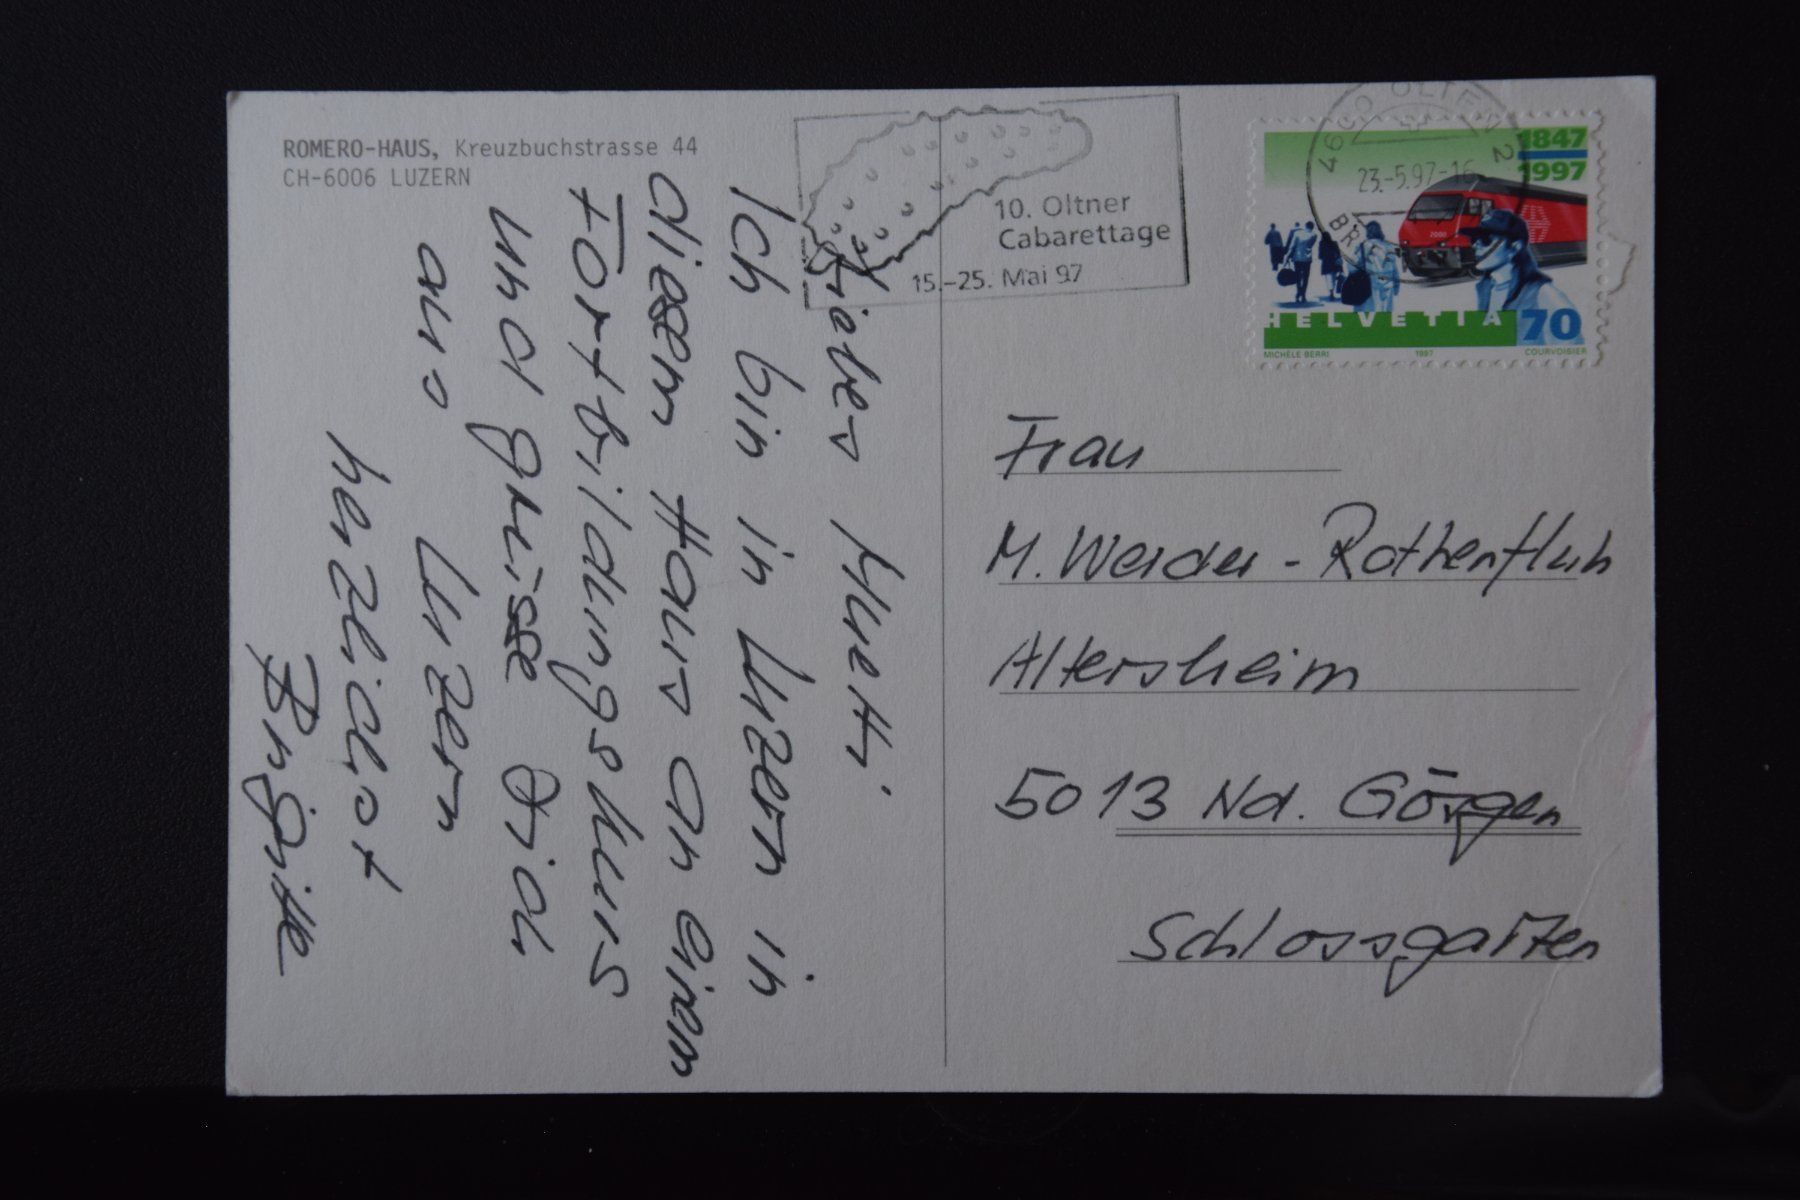 ROMERO-HAUS, Kreuzbuchstrasse 44
CH-6006 LUZERN
10. Oltner
Cabarettage
15.-25. Mai 97
4600 OLTEN 2
23.-5.97-16
1847
1997
2000
HELVETIA 70
MICHÈLE BERRI 1997 COURVOISIER
Liebes Mueti
Ich bin in Luzern in
diesem Haus an einem
Fortbildungskurs
und grüsse Dich
aus Luzern
herzlichst
Brigitte
Frau
M. Werder-Rothenfluh
Altersheim
5013 Nd. Gösgen
Schlossgarten